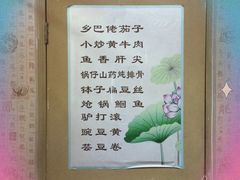 乡巴佬茄子
小炒黄牛肉
鱼香肝尖
锅仔山药炖排骨
钵子扁豆丝
炝锅鮰鱼
驴打滚
豌豆黄
芸豆卷